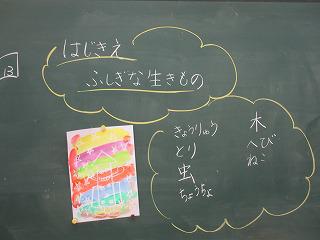 13
はじきえ
ふしぎな生きもの
きょうりゅう
とり
虫
ちょうちょ
木
へび
ねこ